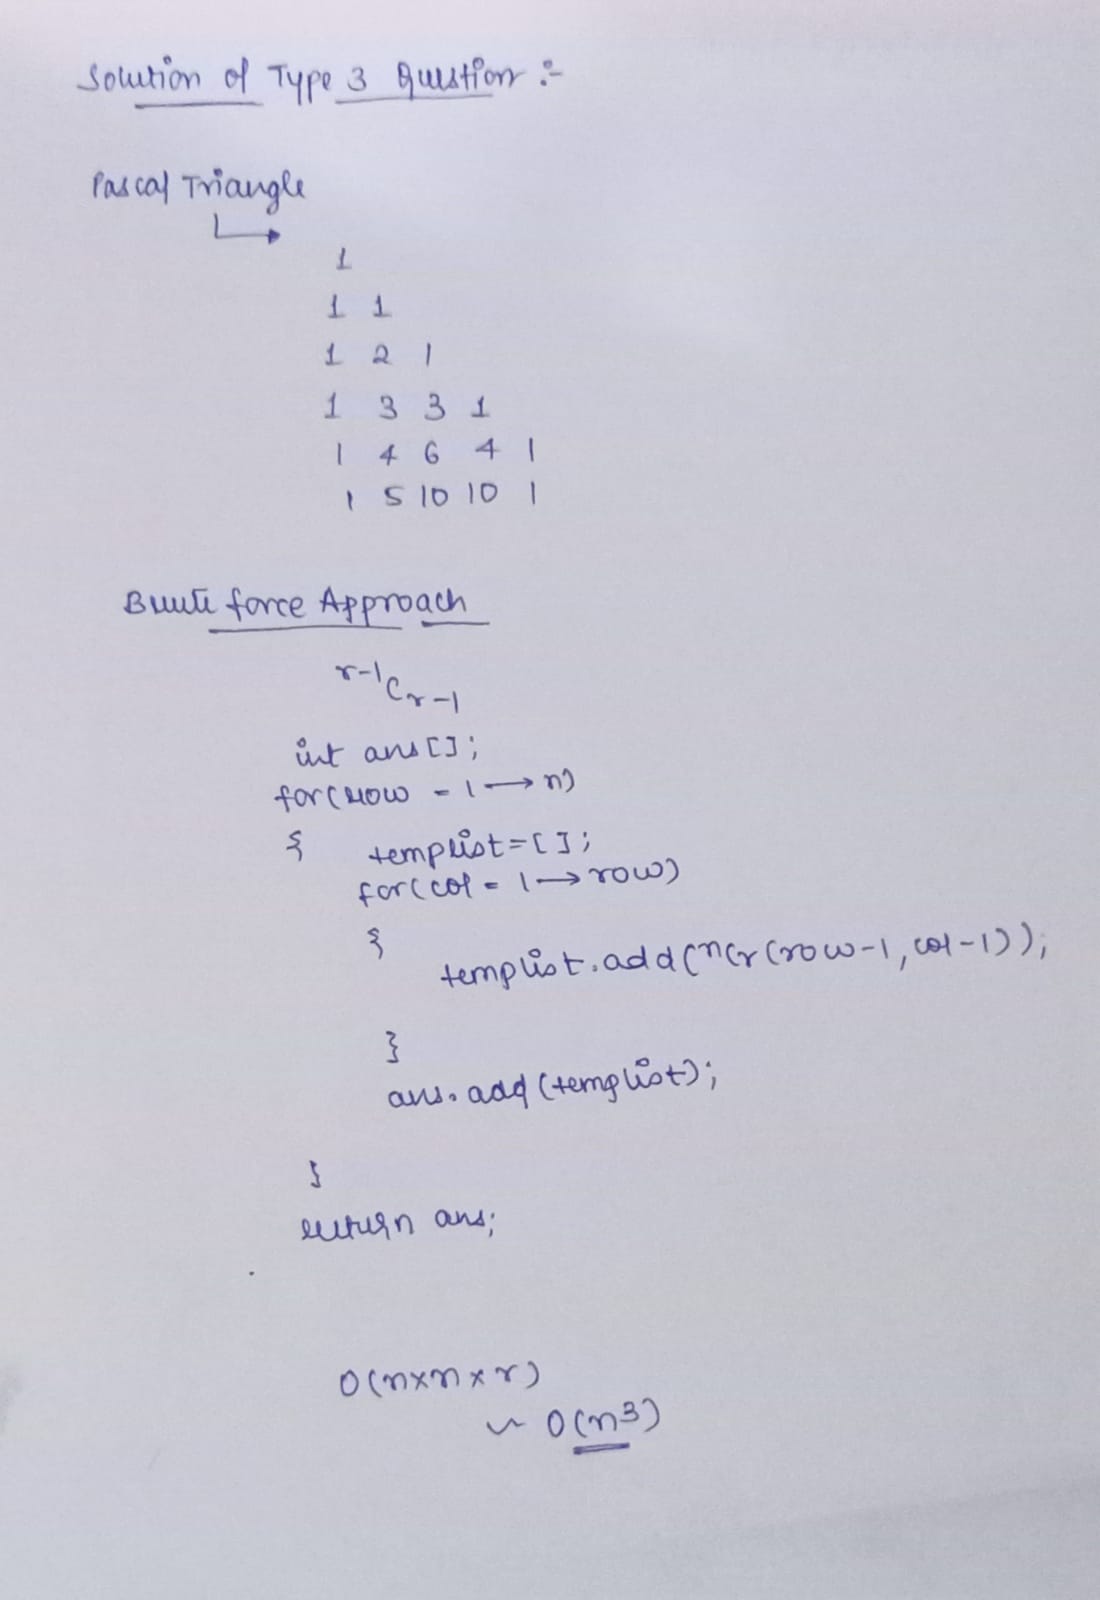 Solution of Type 3 Question :-
Pascal Triangle
1
1 1
1 2 1
1 3 3 1
1 4 6 4 1
1 5 10 10 1
Brute force Approach
r-1Cr-1
int ans[];
for(row = 1 → n)
{ templist=[];
for(col = 1 → row)
{
templist.add(nCr(row-1, col-1));
}
ans.add(templist);
}
return ans;
O(n×n×r)
~ O(n³)